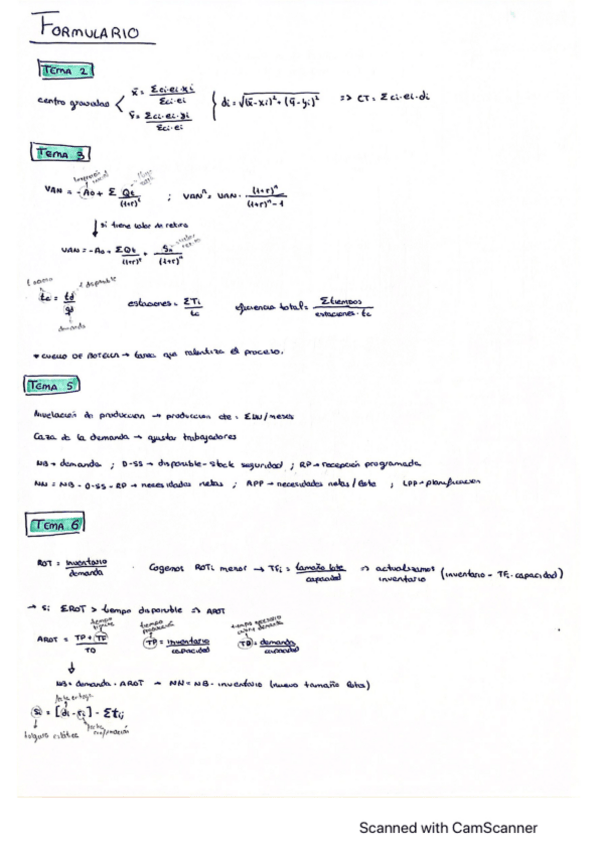 FORMULARIO
TEMA 2
centro gravedad { x̄ = Σci·ei·xi / Σci·ei ; ȳ = Σci·ei·yi / Σci·ei { di = √(x̄-xi)² + (ȳ-yi)² => CT = Σci·ei·di
TEMA 3
VAN = -Ao + Σ Qt/(1+r)^t ; VANⁿ = VAN · (1+r)ⁿ/(1+r)ⁿ-1
↓ si tiene valor de retiro
VAN = -Ao + Σ Qt/(1+r)^t + Sn/(1+r)ⁿ
t disponible
tc = td/qd estaciones = ΣTi/tc eficiencia total = Σtiempos/estaciones·tc
demanda
* CUELLO DE BOTELLA → tarea que ralentiza el proceso.
TEMA 5
Nivelación de producción → producción cte = ΣDN/meses
Caza de la demanda → ajustar trabajadores
NB → demanda ; D-SS → disponible - stock seguridad ; RP → recepción programada
NN = NB - D-SS - RP → necesidades netas ; APP → necesidades netas/lote ; LPP → planificación
TEMA 6
ROT = inventario/demanda · Cogemos ROTi menor → TFi = tamaño lote/capacidad => actualizamos inventario (inventario - TFi·capacidad)
→ si ΣROT > tiempo disponible => AROT
AROT = TP + TF/TD TP = inventario/capacidad TD = demanda/capacidad
↓
NB = demanda · AROT → NN = NB - inventario (nuevo tamaño lote)
si = [di - ri] - Σtij
holgura estática
Scanned with CamScanner